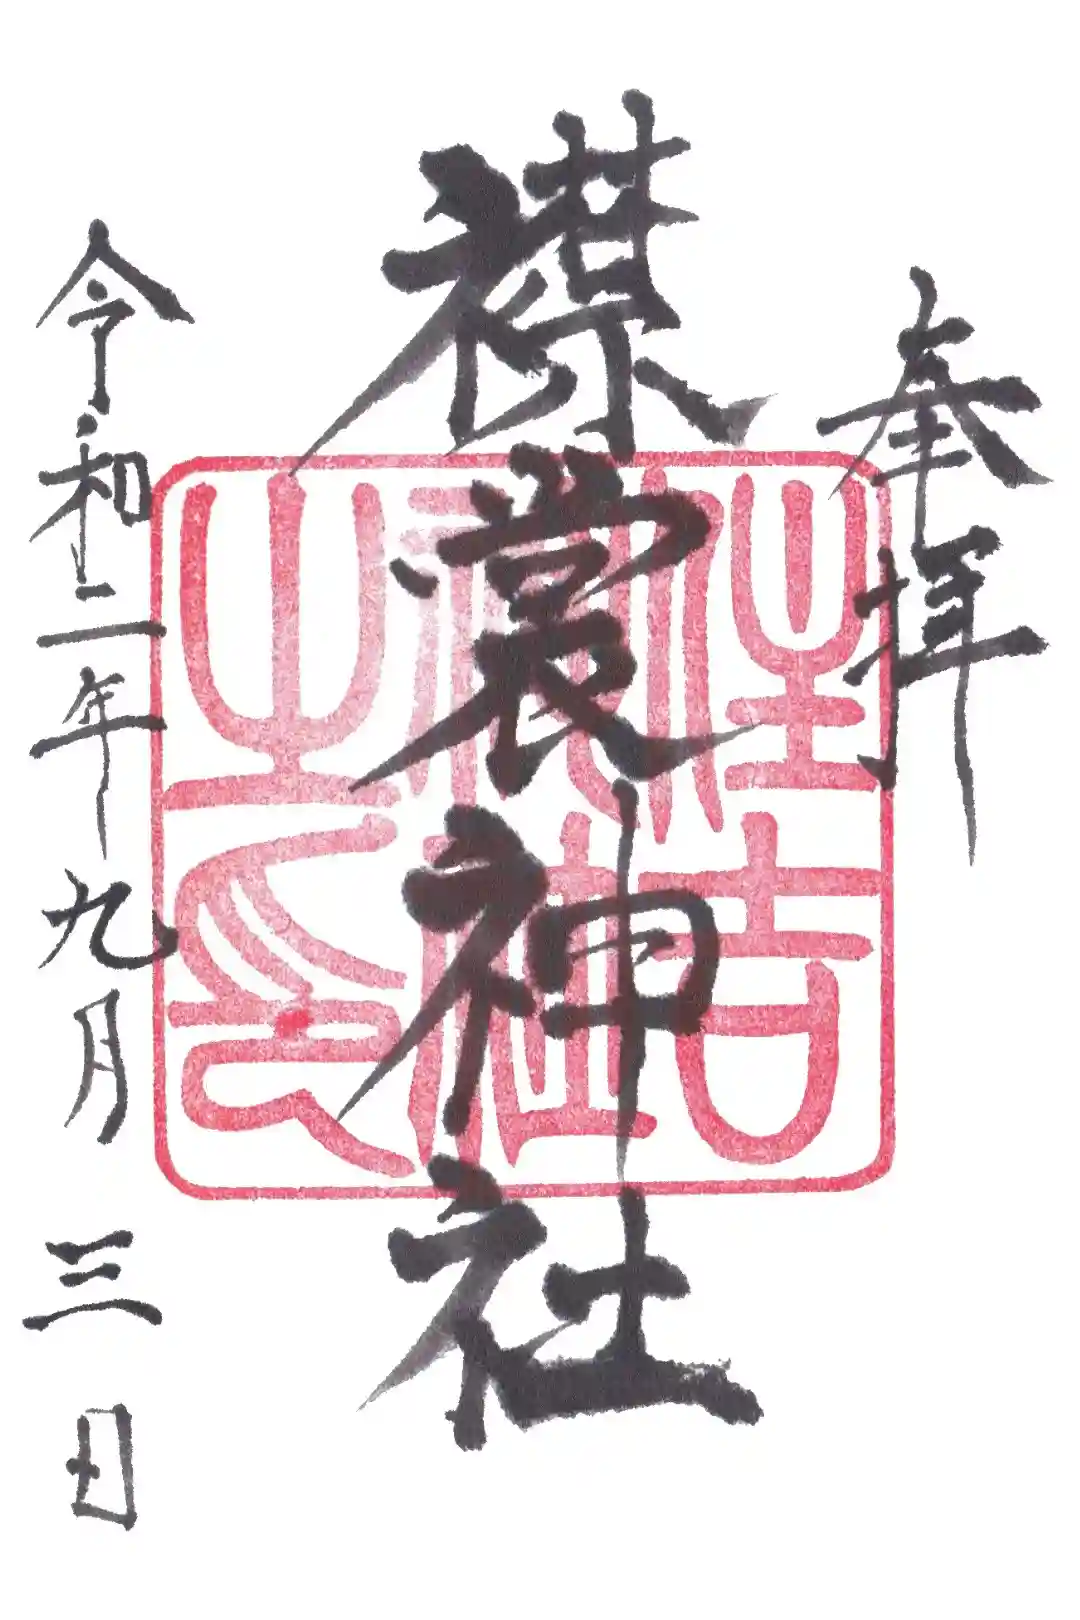 奉拝
襟裳神社
令和二年九月三日
住吉
神社
之印